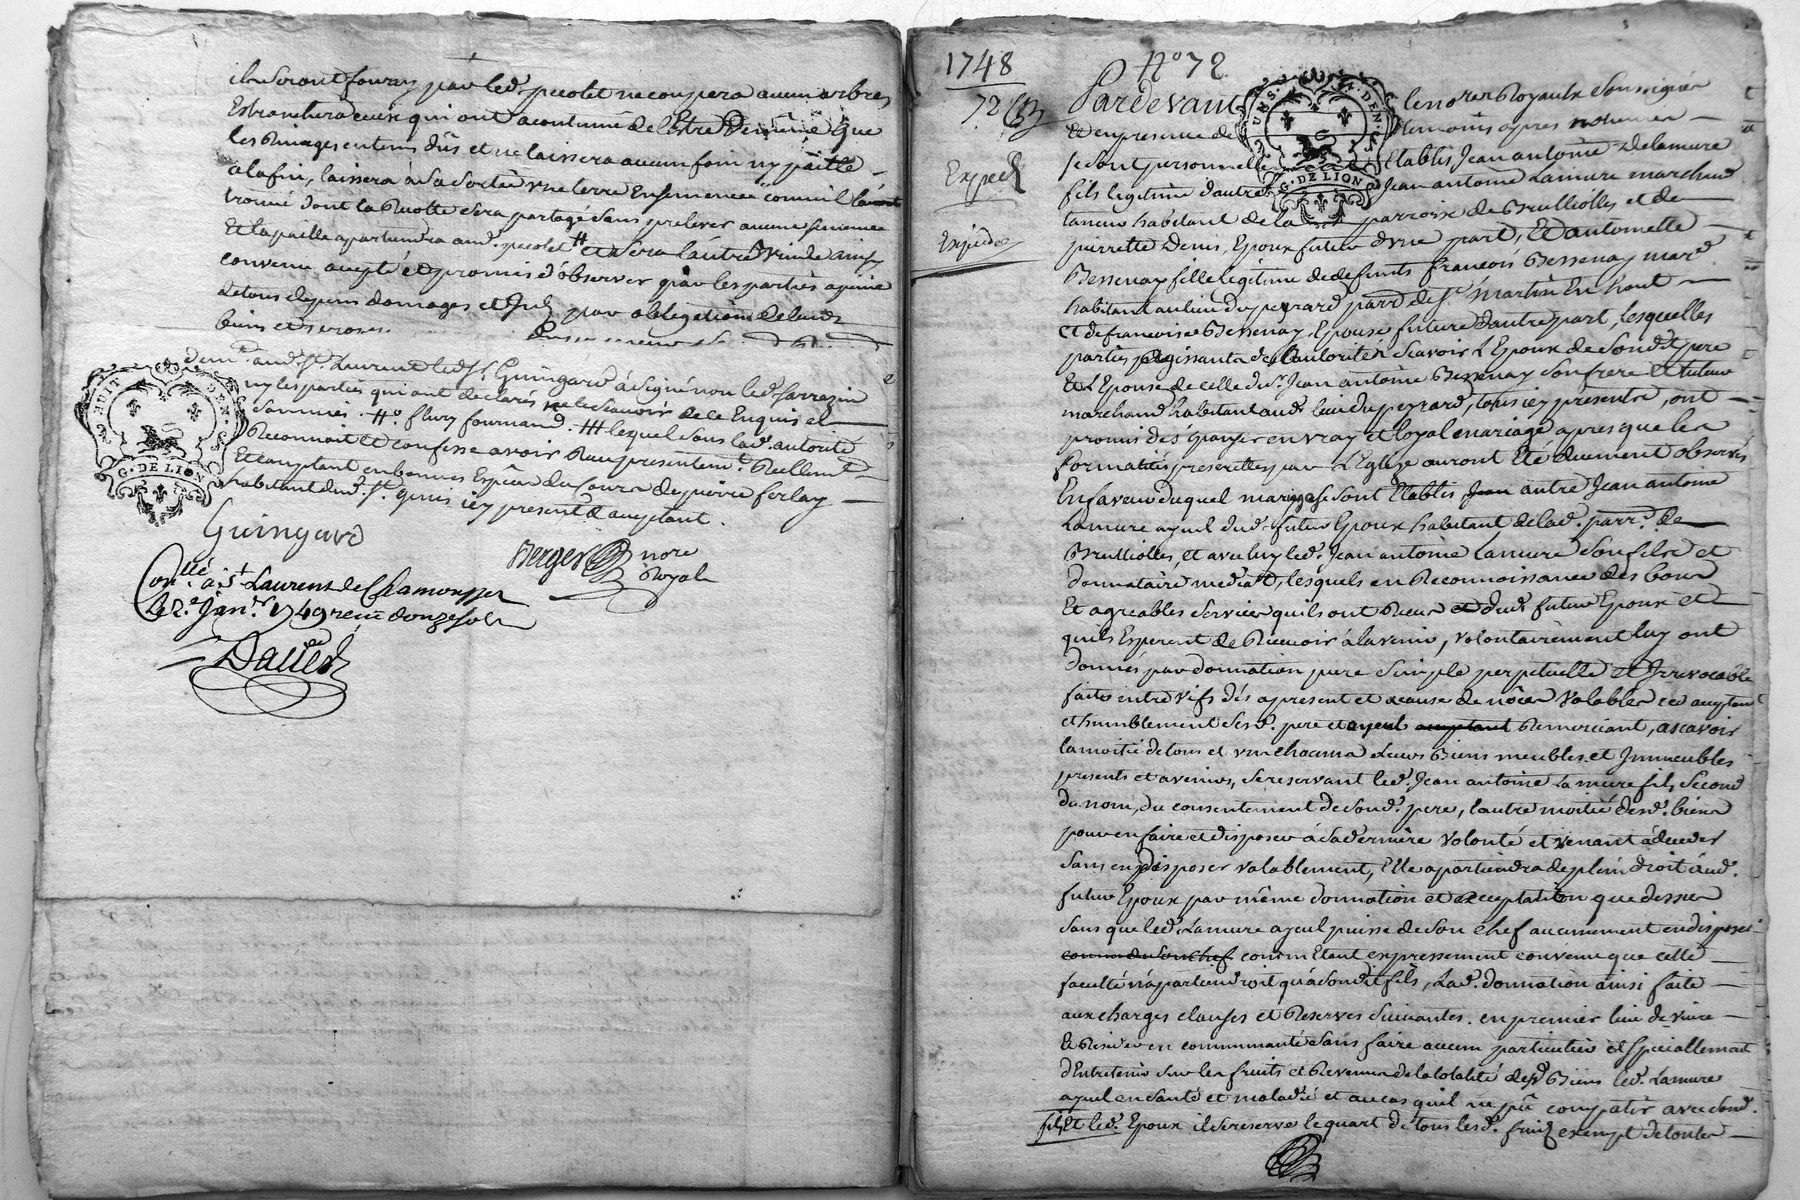 ils seront fournis par led. pecolet ne coupera aucun arbres
Et branchera ceux qui ont acoutumé de l'Estre De même que
les Pinages en tems dûs et ne laissera aucun foin ny paille
a la fin, laissera à sa sortie une terre Ensemencée comm'il l'avoit
trouvé dont la Recolte sera partagé sans prelever aucune semence
Et la paille apartiendra aud. pecolet # et sera l'autre vuide ainsy
convenu accepté et promis d'observer par les parties a peine
de tous depens domages et par obligation de leurs
biens et
aud. St. Laurent led. Sr. Guingard à signé non led. Sarrazin
ny les parties qui ont declarés ne le scavoir de ce Enquis et
Sommés. #o. fleury fournand. ### lequel sous lad. autorité
Reconnoit et confesse avoir Reellemt.
Et comptant en bonnes Especes du Cours de pierre ferlay
habitant dud. St. icy present et acceptant.
Guingard
Berger nore
Royal
Conllé. à St. Laurent de Chamousset
le 2e. Janr. 1749 reçu douze sols
G. DE LION
1748
N° 72
72
Exped
Expediée
Pardevant les nores Royaux Soussignés
Et en presence des temoins apres nommés
se sont personnellement Etablis Jean antoine Delamure
fils legitime d'autre Jean antoine Lamure marchand
taneur habitant de la parroisse de Brulliolles et de
pierrette Denis, Epoux futur d'une part, Et antoinette
Bessenay fille legitime de defunts françois Bessenay mard.
habitant au lieu du peyrard parr. de St. Martin En haut
et de françoise Bessenay, Epouse future d'autre part, lesquelles
parties agissants de l'autorité Scavoir L'Epoux de sond. pere
Et L'Epouse de celle du Sr. Jean antoine Bessenay son frere Et tuteur
marchand habitant aud. lieu du peyrard, tous icy presents, ont
promis de s'épouser en vray et loyal mariage apres que les
formalités prescrittes par L'Eglise auront Eté duement observés
En faveur duquel mariage se sont Etablis Jean autre Jean antoine
Lamure ayeul dud. futur Epoux habitant de lad. parr. de
Brulliolles, et avec luy led. Jean antoine Lamure son fils et
donnataire mediat, lesquels en Reconnoissance des bons
Et agreables services qu'ils ont Reçus dud. futur Epoux et
qu'ils Esperent de Recevoir à l'avenir, volontairement luy ont
donnés par donnation pure Simple perpetuelle et Irrevocable
faite entre vifs dés apresent et a cause de nôces valables ce acceptant
et humblement sesd. pere et ayeul acceptant Remerciant, ascavoir
la moitié de tous et un chacuns Leurs Biens meubles et Immeubles
presents et avenirs, se reservant led. Jean antoine Lamure fils Second
du nom, du consentement de sond. pere, l'autre moitié desd. biens
pour en faire et disposer à sa derniere volonté et venant à deceder
sans en disposer valablement, Elle apartiendra de plein droit aud.
futur Epoux par même donnation et acceptation que dessus
sans que led. Lamure ayeul puisse de son chef aucunement en disposer
comm' du son chef comm' Etant expressement convenu que cette
faculté n'apartiendroit qu'à sond. fils, Lad. donnation ainsi faite
aux charges clauses et Reserves suivantes. en premier lieu de vivre
Et Resider en communauté sans faire aucun particulier et specialement
d'Entretenir sur les fruits et Revenus de la totalité desd. Biens led. Lamure
ayeul en santé et maladie et au cas qu'il ne pû compatir avec sond.
fils, Et led. Epoux il se reserve le quart de tous lesd. fruits exempt de toutes
G. DE LION